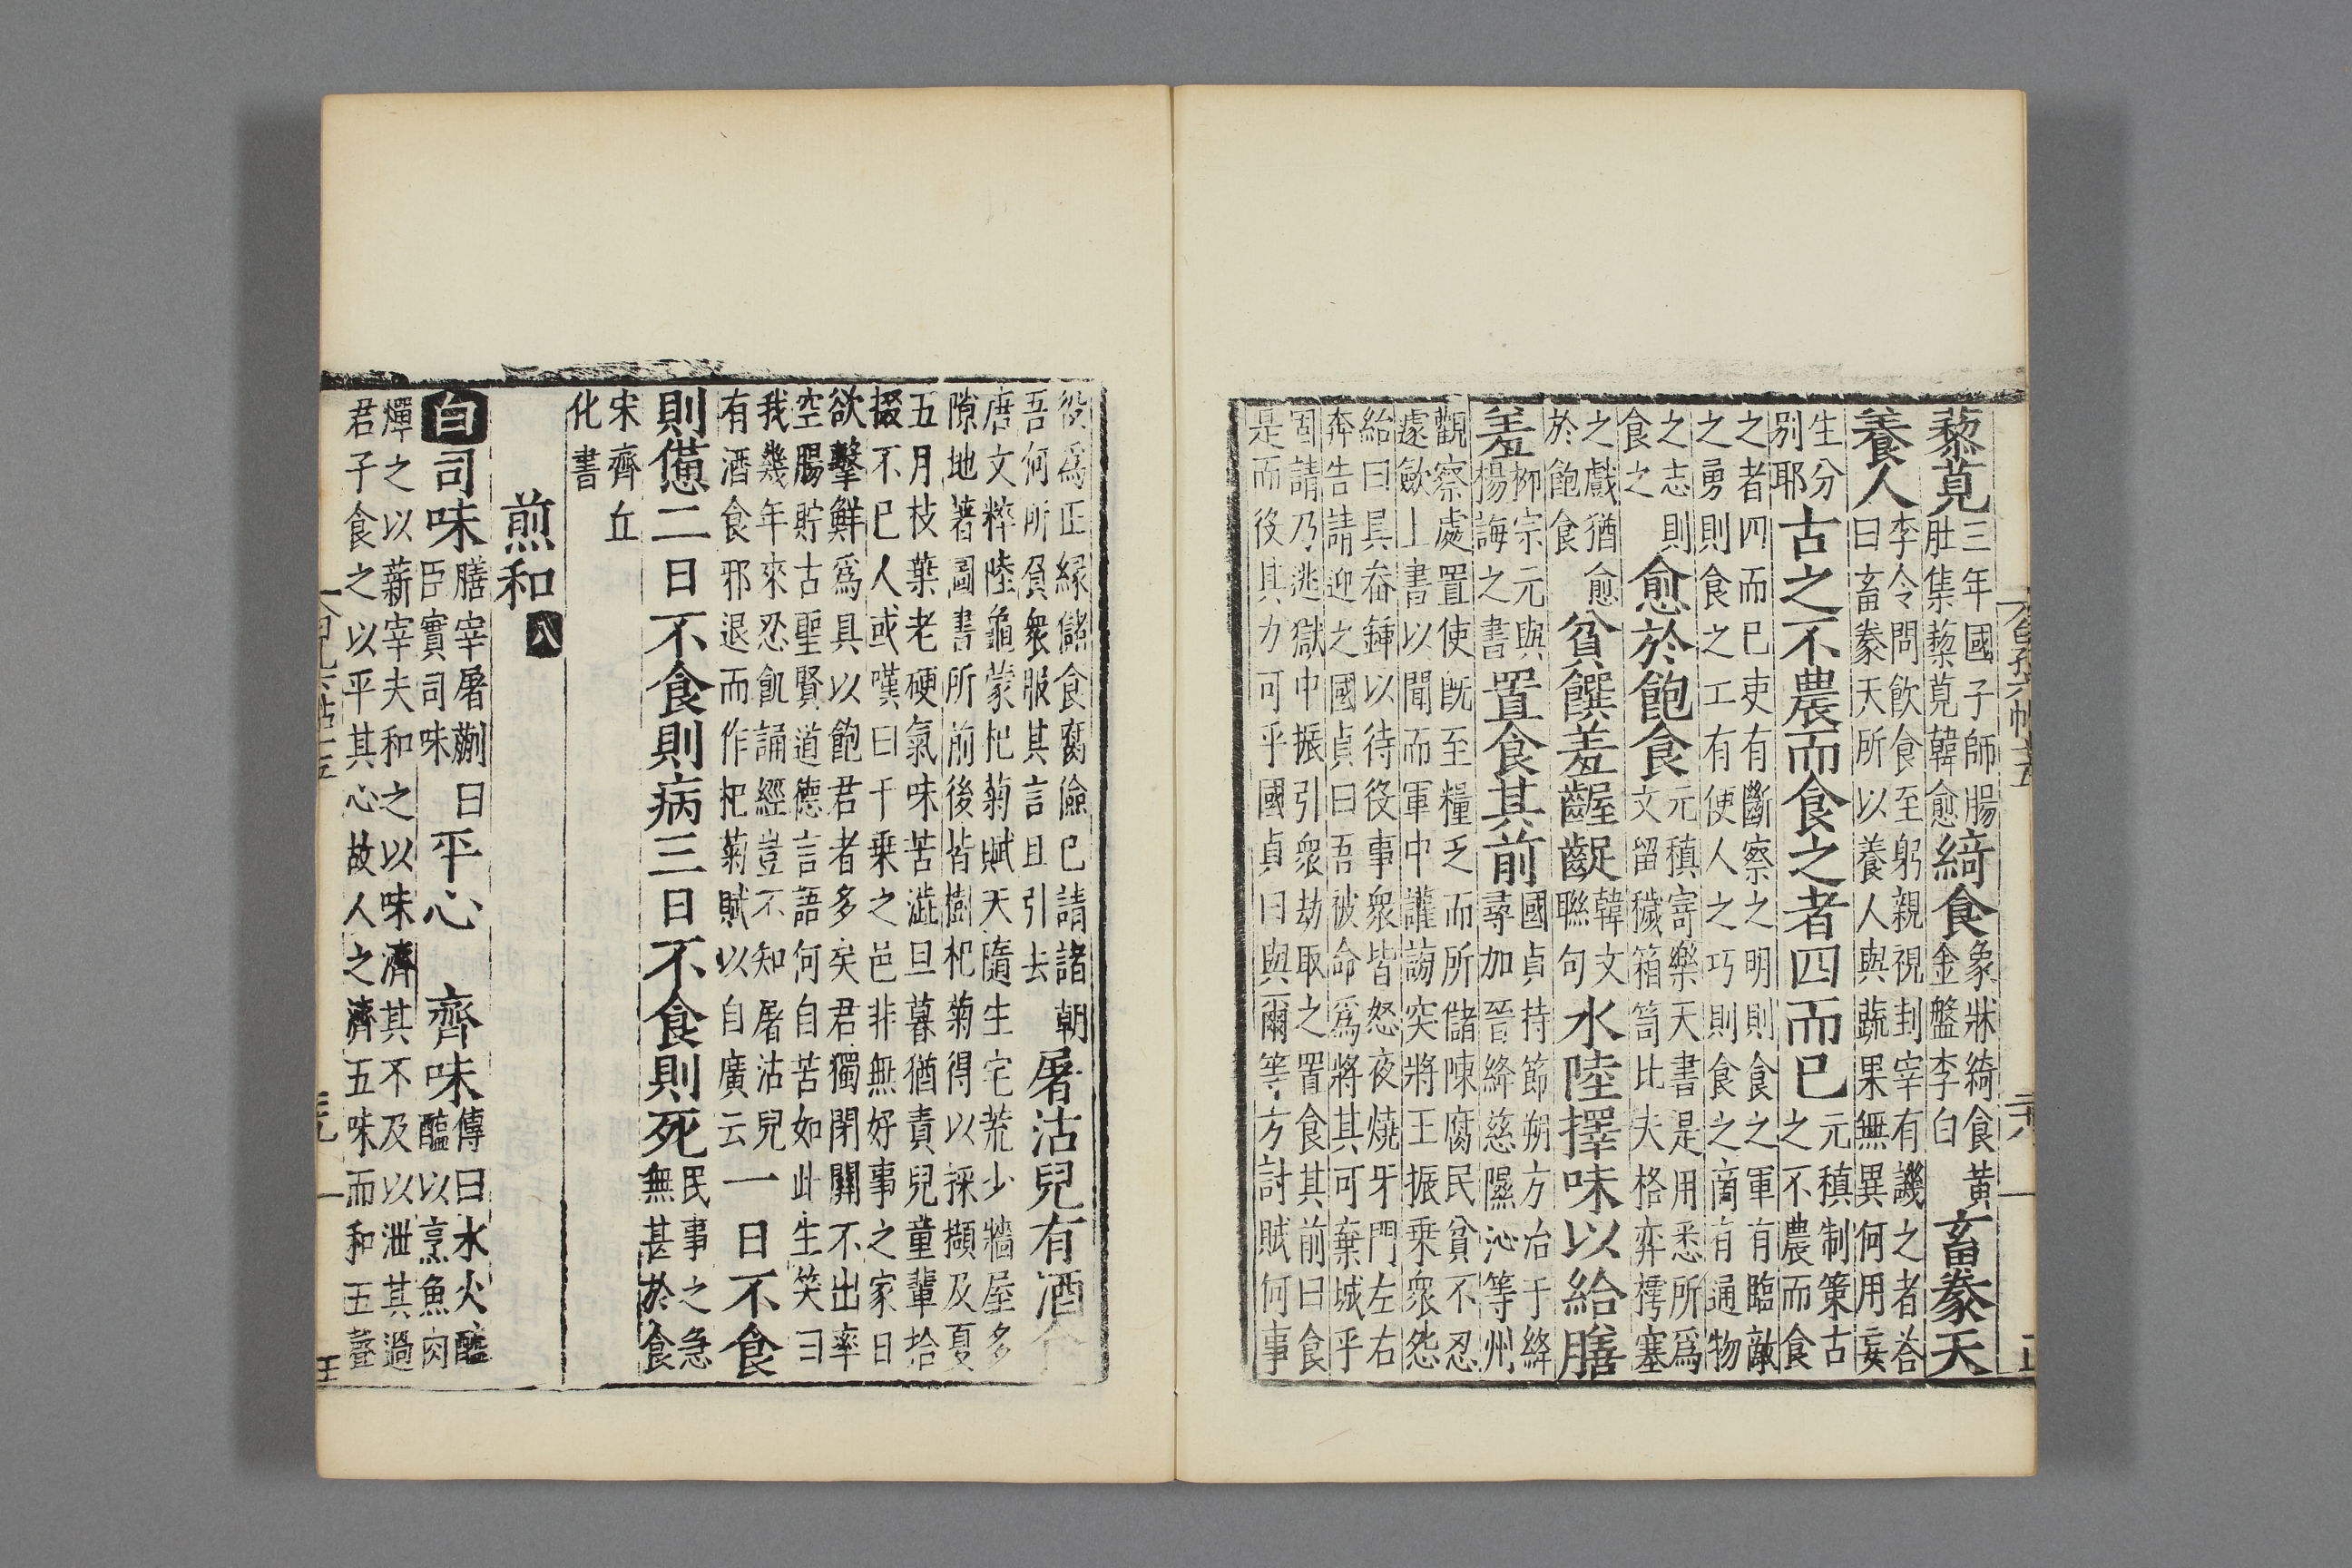 藜莧三年國子師腸肚集藜莧韓愈綺食象牀綺食黃金盤李白畜豢天
養人李令問飲食至躬親視封宰有譏之者荅曰畜豢天所以養人與蔬果無異何用妄
生分別耶古之不農而食之者四而已元稹制策古之不農而食
之者四而已吏有斷察之明則食之軍有臨敵之勇則食之工有使人之巧則食之商有通物
之志則食之愈於飽食元稹寄樂天書是用悉所爲文留穢箱笥比夫格弈樗塞
之戲猶愈於飽食貧饌羞齷齪韓文聯句水陸擇味以給膳
羞柳宗元與楊誨之書置食其前國貞持節朔方治于絳尋加晉絳慈隰沁等州
觀察處置使旣至糧乏而所儲陳腐民貧不忍遽歛上書以聞而軍中讙謗突將王振乗衆怨
紿曰具畚鍤以待役事衆皆怒夜燒牙門左右奔告請迎之國貞曰吾被命爲將其可棄城乎
固請乃逃獄中振引衆劫取之置食其前曰食是而役其力可乎國貞曰與爾等方討賊何事
役爲正縁儲食腐儉已請諸朝吾何所負衆服其言且引去屠沽兒有酒食
唐文粹陸龜蒙杞菊賦天隨生宅荒少牆屋多隙地著圖書所前後皆樹杞菊得以採擷及夏
五月枝葉老硬氣味苦澁旦暮猶責兒童輩拾掇不已人或嘆曰千乗之邑非無好事之家日
欲擊鮮爲具以飽君者多矣君獨閉關不出率空腸貯古聖賢道德言語何自苦如此生笑曰
我幾年來忍飢誦經豈不知屠沽兒有酒食邪退而作杞菊賦以自廣云一日不食
則憊二日不食則病三日不食則死民事之急無甚於食
宋齊丘化書
煎和八
白司味膳宰屠蒯曰臣實司味平心 齊味傳曰水火醯醢以烹魚肉
燀之以薪宰夫和之以味濟其不及以泄其過君子食之以平其心故人之濟五味而和五聲